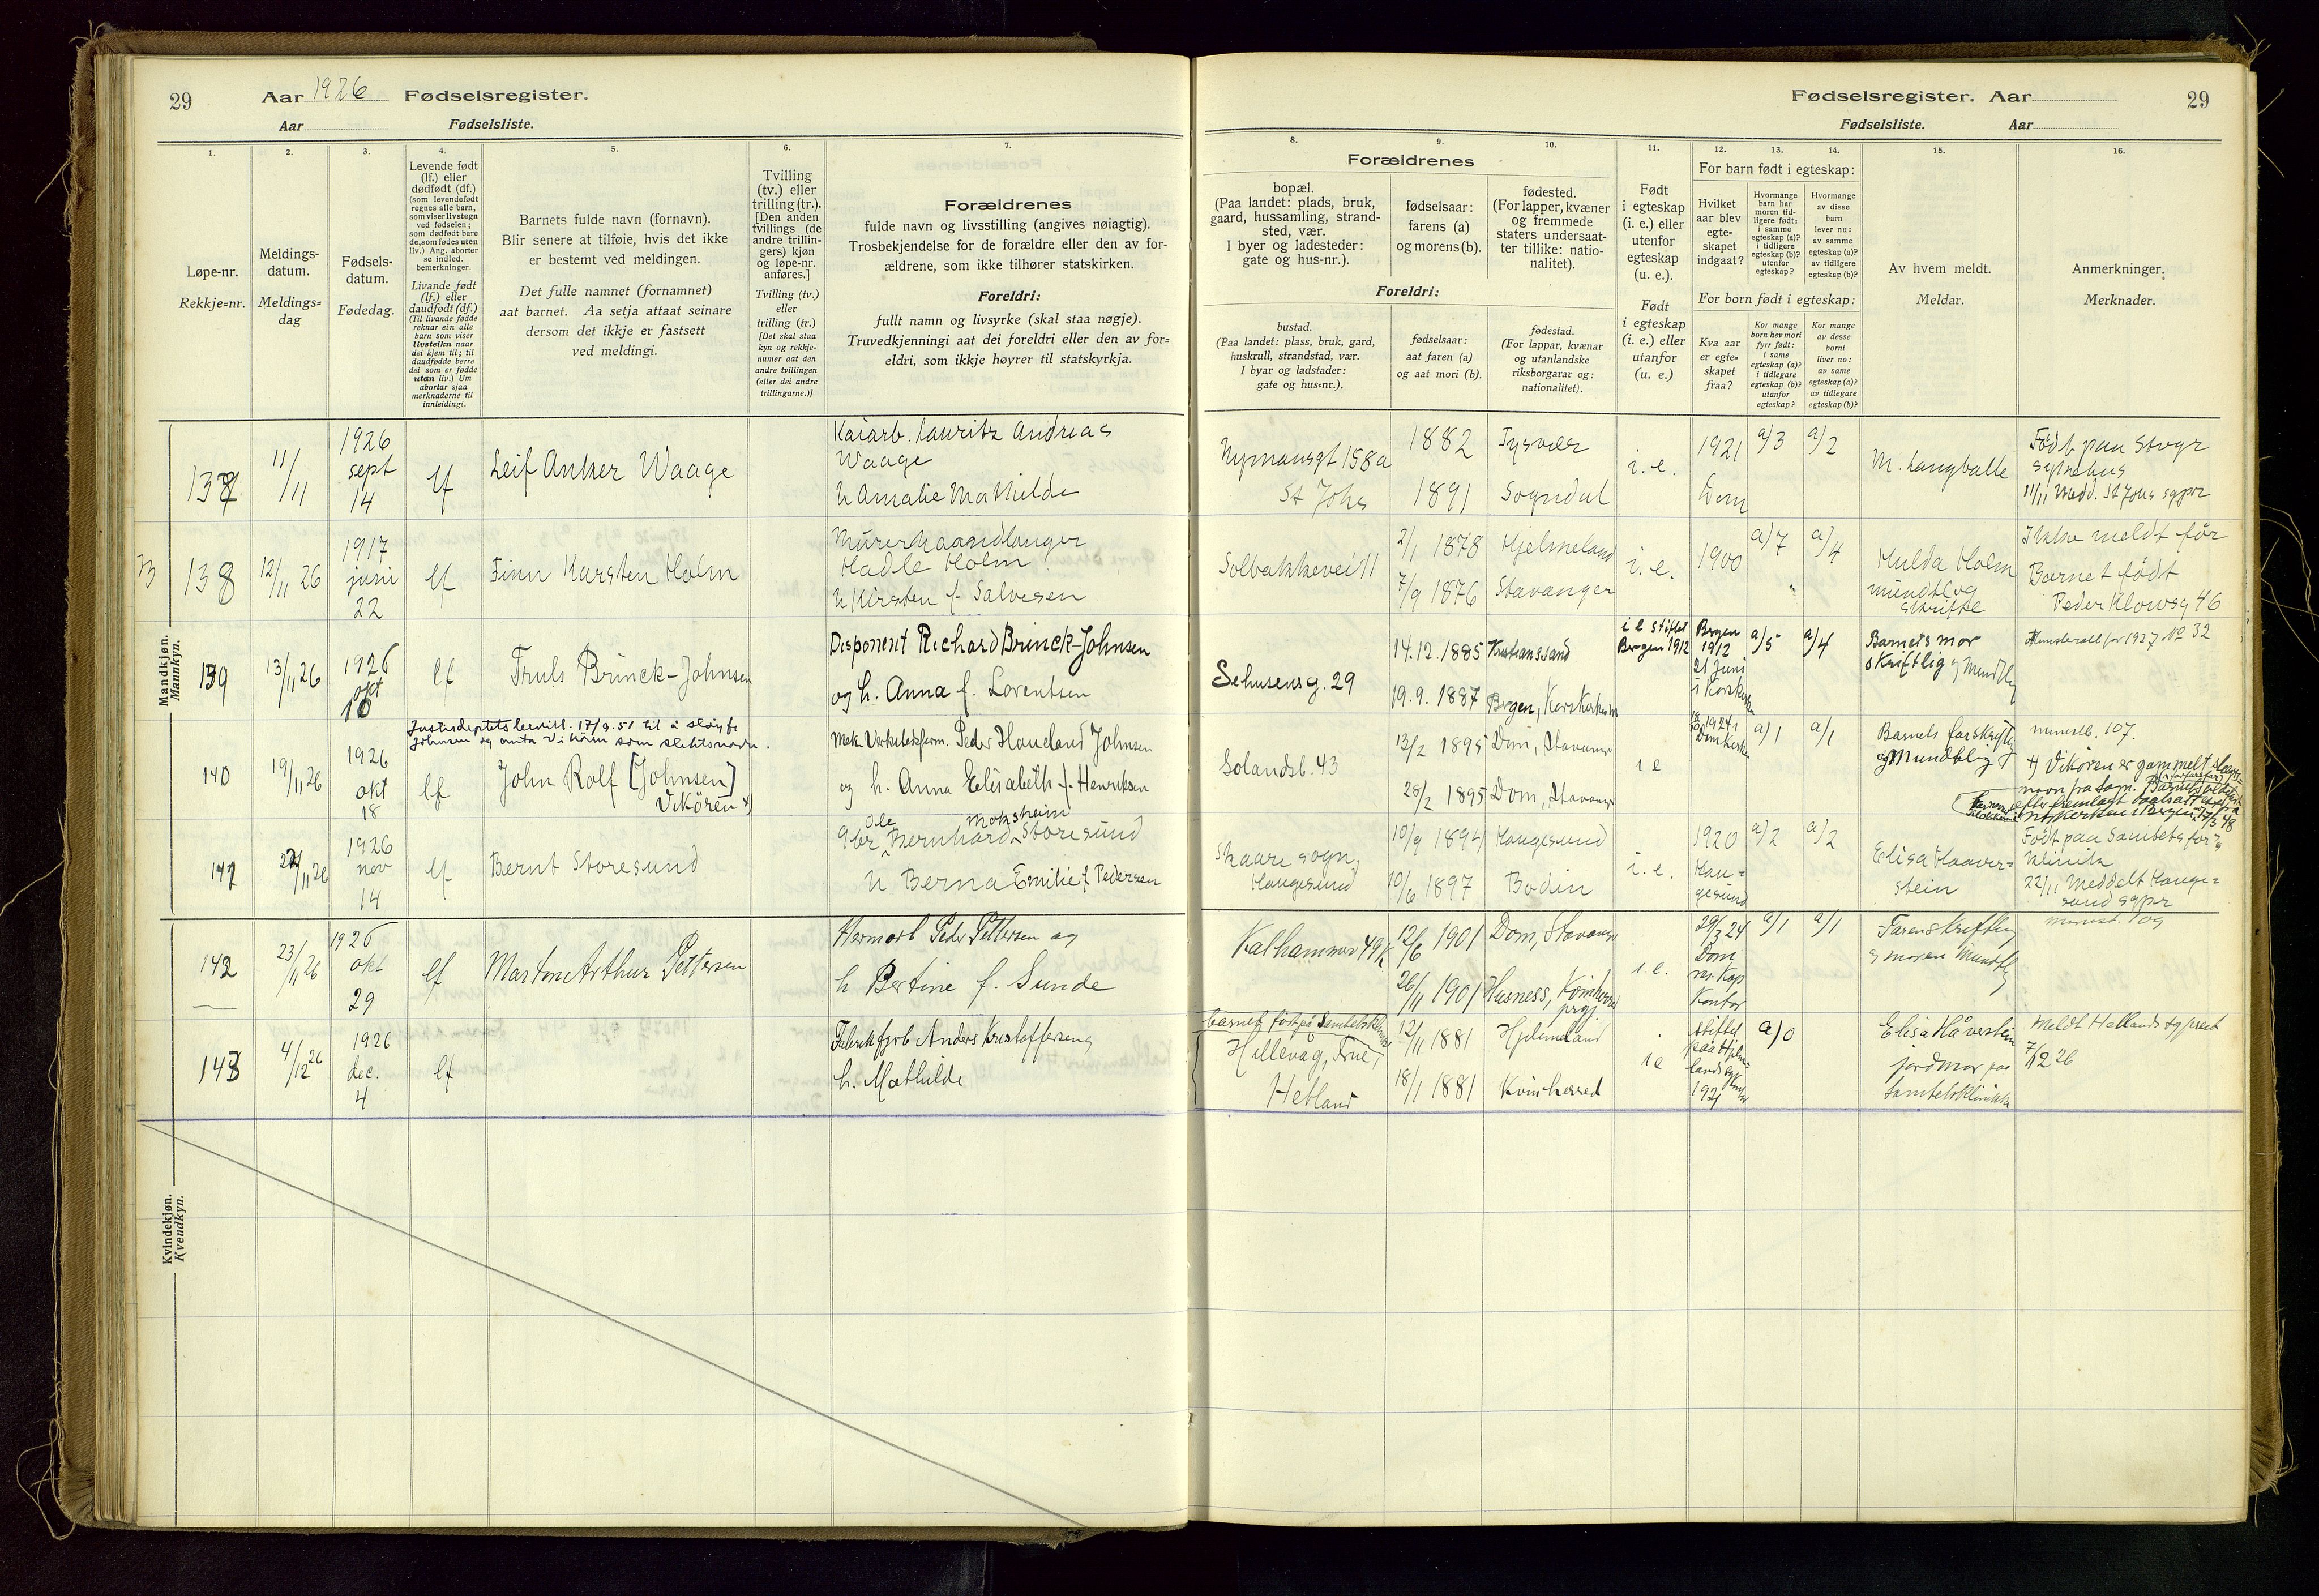 29 Aar 1926 Fødselsregister.
Aar Fødselsliste.
1. 2. 3. 4. 5. 6. 7.
Løpe-nr.
Rekkje=nr.
Meldings-
datum.
Meldings=
dag
Fødsels-
datum.
Fødedag.
Levende født
(lf.) eller
dødfødt (df.)
(som levendefødt
regnes alle barn,
som viser livstegn
ved fødselen;
som dødfødt bare
de, som fødes uten
liv.) Ang. aborter
se indled.
bemerkninger.
Livande født
(lf.) eller
daudfødt (df.)
(Til livande fødde
reknar ein alle
barn som viser
livsteikn naar
dei kjem til; til
daudfødde berre
dei som er fødde
utan liv.) Um
abortar sjaa
merknaderne til
innleidingi.
Barnets fulde navn (fornavn).
Blir senere at tilføie, hvis det ikke
er bestemt ved meldingen.
Det fulle namnet (fornamnet)
aat barnet. Aa setja attaat seinare
dersom det ikkje er fastsett
ved meldingi.
Tvilling
(tv.) eller
trilling (tr.).
[Den anden
tvillings (de
andre trillin-
gers) kjøn
og løpe-nr.
anføres.]
Tvilling (tv.)
eller
trilling (tr.)
[Det skal staa
kyn og rekkje-
numer aat den
andre tvillingen
(eller dei andre
trillingarne.)]
Forældrenes
fulde navn og livsstilling (angives nøiagtig).
Trosbekjendelse for de forældre eller den av for-
ældrene, som ikke tilhører statskirken.
Foreldri:
fullt namn og livsyrke (skal staa nøgje).
Truvedkjenningi aat dei foreldri eller den av for=
eldri, som ikkje høyrer til statskyrkja.
Mandkjøn.
Mannkyn.
137 11/11 1926 sept 14 lf Leif Anker Waage
Kaiarb. Lauritz Andreas
Waage
h Amalie Mathilde
138 12/11 26 1917 juni 22 lf Finn Karsten Holm
Murerhaandlanger
Hadle Holm
h Kirsten f. Salvesen
139 13/11 26 1926 okt 10 lf Truls Brinck-Johnsen
Disponent Richard Brinck-Johnsen
og h. Anna f. Lorentsen
Justisdeptets bevill. 17/9.51 til å sløyfe
Johnsen og anta Vikören som slektsnavn.
140 19/11 26 1926 okt 18 lf John Rolf [Johnsen]
Vikören +)
Mek. Verkstedform. Peder Haueland Johnsen
og h. Anna Elisabeth f. Henriksen
141 22/11 26 1926 nov 14 lf Bernt Storesund
Ole Moksheim
Gbr Bernhard Storesund
h Berna Emilie f Pedersen
142 23/11 26 1926 okt 29 lf Marton Arthur Pettersen
Hermarb Peder Pettersen og
h Bertine f. Sunde
143 4/12 26 1926 dec. 4 lf
Fabrikkarb Anders Kristoffersen og
h. Mathilde
Kvindekjøn.
Kvendkyn.
Fødselsregister. Aar 29
Fødselsliste. Aar
8. 9. 10. 11. 12. 13. 14. 15. 16.
Forældrenes
bopæl.
(Paa landet: plads, bruk,
gaard, hussamling, strand-
sted, vær.
I byer og ladesteder:
gate og hus-nr.).
fødselsaar:
farens (a)
og morens (b).
fødested.
(For lapper, kvæner
og fremmede
staters undersaat-
ter tillike: natio-
nalitet).
Foreldri:
bustad.
(Paa landet: plass, bruk, gard,
huskrull, strandstad, vær.
I byar og ladstader:
gate og hus=nr.).
fødselsaar:
aat faren (a)
og aat mori (b).
fødestad.
(For lappar, kvænar
og utanlandske
riksborgarar og:
nationalitet).
Født
i egteskap
(i. e.) eller
utenfor
egteskap
(u. e.).
Født
i egteskap
(i. e.) eller
utanfor
(u. e.)
For barn født i egteskap:
Hvilket
aar blev
egte-
skapet
indgaat?
Hvormange
barn har
moren tid-
ligere født:
i samme
egteskap (a)?
i tidligere
egteskap (b)?
utenfor
egteskap?
Hvormange
av disse
barn
lever nu:
av samme
egteskap (a)?
av tidligere
egteskap (b)?
For born født i egteskap:
Kva aar
er egte=
skapet
fraa?
Kor mange
born hev mori
fyrr født:
i same
egteskap (a)?
i tidlegare
egteskap (b)?
utanfor
egteskap?
Kor mange
av desse
borni
liver no:
av same
egteskap (a)?
av tidlegare
egteskap (b)?
Av hvem meldt.
Meldar.
Anmerkninger.
Merknader.
Nymansgt 158a
St Johs
1882 Tysvær
1891 Sogndal
i. e. 1921 Dom a/3 a/2 M. Langballe
Født paa Stvgr
sykehus
11/11 Medd. St Johs sgpr
Solbakkevei 11
2/1 1878 Hjelmeland
7/9 1876 Stavanger
i. e. 1900 a/7 a/4
Hulda Holm
mundtl og
skriftl
Ikke meldt før
Barnet født
Peder Klowsg 46
Sehusensg. 29
14.12.1885 Kristianssand
19.9.1887 Bergen, Korskirken
i e stiftet
Bergen 1912
Bergen
1912
21 Juni
i Korskirken
a/5 a/4
Barnets mor
skriftlig og Mundtlig
Ministerialb for 1927 No 32
Solandsb. 43
13/2 1895 Dom, Stavanger
28/2 1895 Dom, Stavanger
i e 1924 i
Domkirke
a/1 a/1
Barnets far skriftlig
og Mundtlig
ministb. 107.
+) Vikören er gammelt slægts-
navn fra
Skaare sogn,
Haugesund
10/9 1894 Haugesund
10/6 1897 Bodin
i. e. 1920
Hau=
gesund
a/2 a/2
Elisa Haaver=
stein
Født paa Sanitetsfor's
klinik
22/11 Meddelt Hauge=
sund sgpr
Kalhammer 49 k
12/6 1901 Dom, Stavanger
26/11 1901 Husness, Kvinherred
prgj
i. e. 29/3 24
Dom
res. Kap
Kontor
a/1 a/1
Faren skriftlig
og moren Mundtlig
barnet født på Sanitetsklinikk
Hillevåg, Frue,
Hetland
12/11 1881 Hjelmeland
18/1 1881 Kvinherred
i e
stiftet
paa Hjelme-
land
1921
a/0
Elisa Håverstein
jordmor paa
Sanitetsklinikk
Meldt Hetlands sgprest
7/12 26